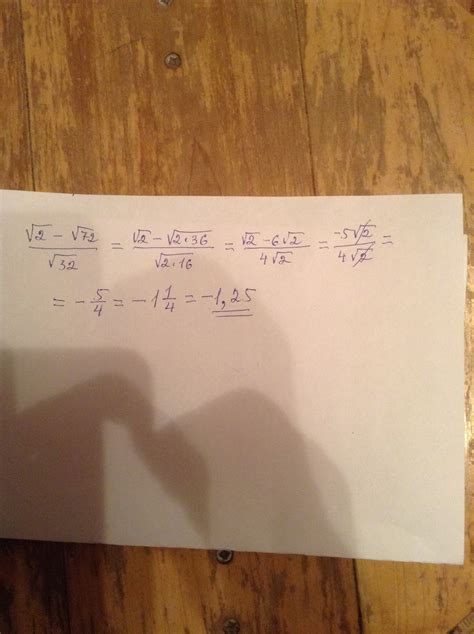 (√2 − √72)/√32 = (√2 − √(2·36))/√(2·16) = (√2 − 6√2)/(4√2) = (−5√2)/(4√2) =
= −5/4 = −1 1/4 = −1,25